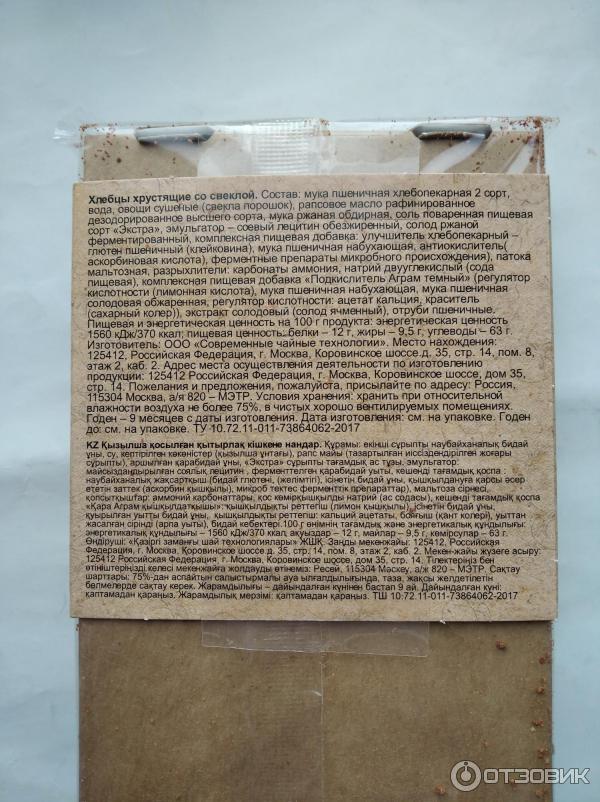 Хлебцы хрустящие со свеклой. Состав: мука пшеничная хлебопекарная 2 сорт,
вода, овощи сушеные (свекла порошок), рапсовое масло рафинированное
дезодорированное высшего сорта, мука ржаная обдирная, соль поваренная пищевая
сорт «Экстра», эмульгатор – соевый лецитин обезжиренный, солод ржаной
ферментированный, комплексная пищевая добавка: улучшитель хлебопекарный –
глютен пшеничный (клейковина), мука пшеничная набухающая, антиокислитель(
аскорбиновая кислота), ферментные препараты микробного происхождения), патока
мальтозная, разрыхлители: карбонаты аммония, натрий двууглекислый (сода
пищевая), комплексная пищевая добавка «Подкислитель Аграм темный» (регулятор
кислотности (лимонная кислота), мука пшеничная набухающая, мука пшеничная
солодовая обжаренная, регулятор кислотности: ацетат кальция, краситель
(сахарный колер)), экстракт солодовый (солод ячменный), отруби пшеничные.
Пищевая и энергетическая ценность на 100 г продукта: энергетическая ценность
1560 кДж/370 ккал; пищевая ценность: белки – 12 г, жиры – 9,5 г, углеводы – 63 г.
Изготовитель: ООО «Современные чайные технологии». Место нахождения:
125412, Российская Федерация, г. Москва, Коровинское шоссе д. 35, стр. 14, пом. 8,
этаж 2, каб. 2. Адрес места осуществления деятельности по изготовлению
продукции: 125412 Российская Федерация, г. Москва, Коровинское шоссе, дом 35,
стр. 14. Пожелания и предложения, пожалуйста, присылайте по адресу: Россия,
115304 Москва, а/я 820 – МЭТР. Условия хранения: хранить при относительной
влажности воздуха не более 75%, в чистых хорошо вентилируемых помещениях.
Годен – 9 месяцев с даты изготовления. Дата изготовления: см. на упаковке. Годен
до: см. на упаковке. ТУ 10.72.11-011-73864062-2017
KZ Қызылша қосылған қытырлақ кішкене нандар. Құрамы: екінші сұрыпты наубайханалық бидай
ұны, су, кептірілген көкөністер (қызылша ұнтағы), рапс майы (тазартылған иіссіздендірілген жоғары
сұрыпты), аршылған қарабидай ұны, «Экстра» сұрыпты тамақтық ас тұзы, эмульгатор:
майсыздандырылған соялық лецитин, ферменттелген қарабидай уыты, кешенді тағамдық қоспа :
наубайханалық жақсартқыш (бидай глютені, (желімтігі), ісінетін бидай ұны, қышқылдануға қарсы әсер
ететін заттек (аскорбин қышқылы), микроб тектес ферменттік препараттар), мальтоза сірнесі,
қопсытқыштар: аммоний карбонаттары, қос көмірқышқылды натрий (ас содасы), кешенді тағамдық қоспа
«Қара Аграм қышқылдатқышы»:қышқылдықты реттегіш (лимон қышқылы), ісінетін бидай ұны,
қуырылған уытты бидай ұны, қышқылдықты реттегіш: кальций ацетаты, бояғыш (қант колері), уыттан
жасалған сірінді (арпа уыты), бидай кебектері.100 г өнімнің тағамдық және энергетикалық құндылығы:
энергетикалық құндылығы – 1560 кДж/370 ккал, ақуыздар – 12 г, майлар – 9,5 г, көмірсулар – 63 г.
Өндіруші: «Қазіргі заманғы шай технологиялары» ЖШҚ. Заңды мекенжайы: 125412, Российская
Федерация, г. Москва, Коровинское шоссе д. 35, стр. 14, пом. 8, этаж 2, каб. 2. Мекен-жайы жүзеге асыру:
125412 Российская Федерация, г. Москва, Коровинское шоссе, дом 35, стр. 14. Тілектеріңіз бен
өтініштеріңізді келесі мекенжайға жолдауды өтінеміз: Ресей, 115304 Мәскеу, а/я 820 – МЭТР. Сақтау
шарттары: 75%-дан аспайтын салыстырмалы ауа ылғалдылығында, таза, жақсы желдетілетін
бөлмелерде сақтау керек. Жарамдылығы – дайындалған күнінен бастап 9 ай. Дайындалған күні:
қаптамадан қараңыз. Жарамдылық мерзімі: қаптамадан қараңыз. ТШ 10.72.11-011-73864062-2017
ОТЗОВИК